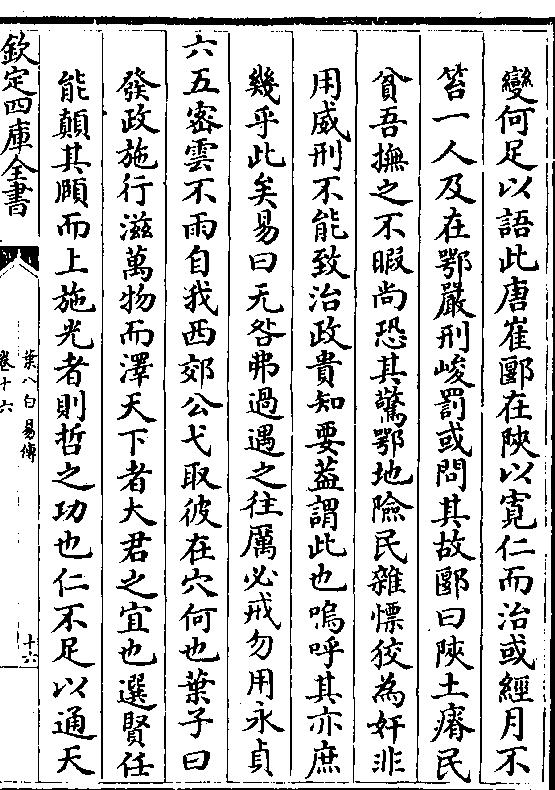 變何足以語此唐崔郾在陜以寛仁而治或經月不
笞一人及在鄂嚴刑峻罰或問其故郾曰陜土瘠民
貧吾撫之不暇尚恐其驚鄂地險民雜慓狡為奸非
用威刑不能致治政貴知要葢謂此也嗚呼其亦庶
幾乎此矣易曰无咎弗過遇之往厲必戒勿用永貞
六五密雲不雨自我西郊公弋取彼在穴何也葉子曰
發政施行滋萬物而澤天下者大君之宜也選賢任
能顛其頤而上施光者則哲之功也仁不足以通天
欽定四庫全書
葉八白易傳
卷十六
十六